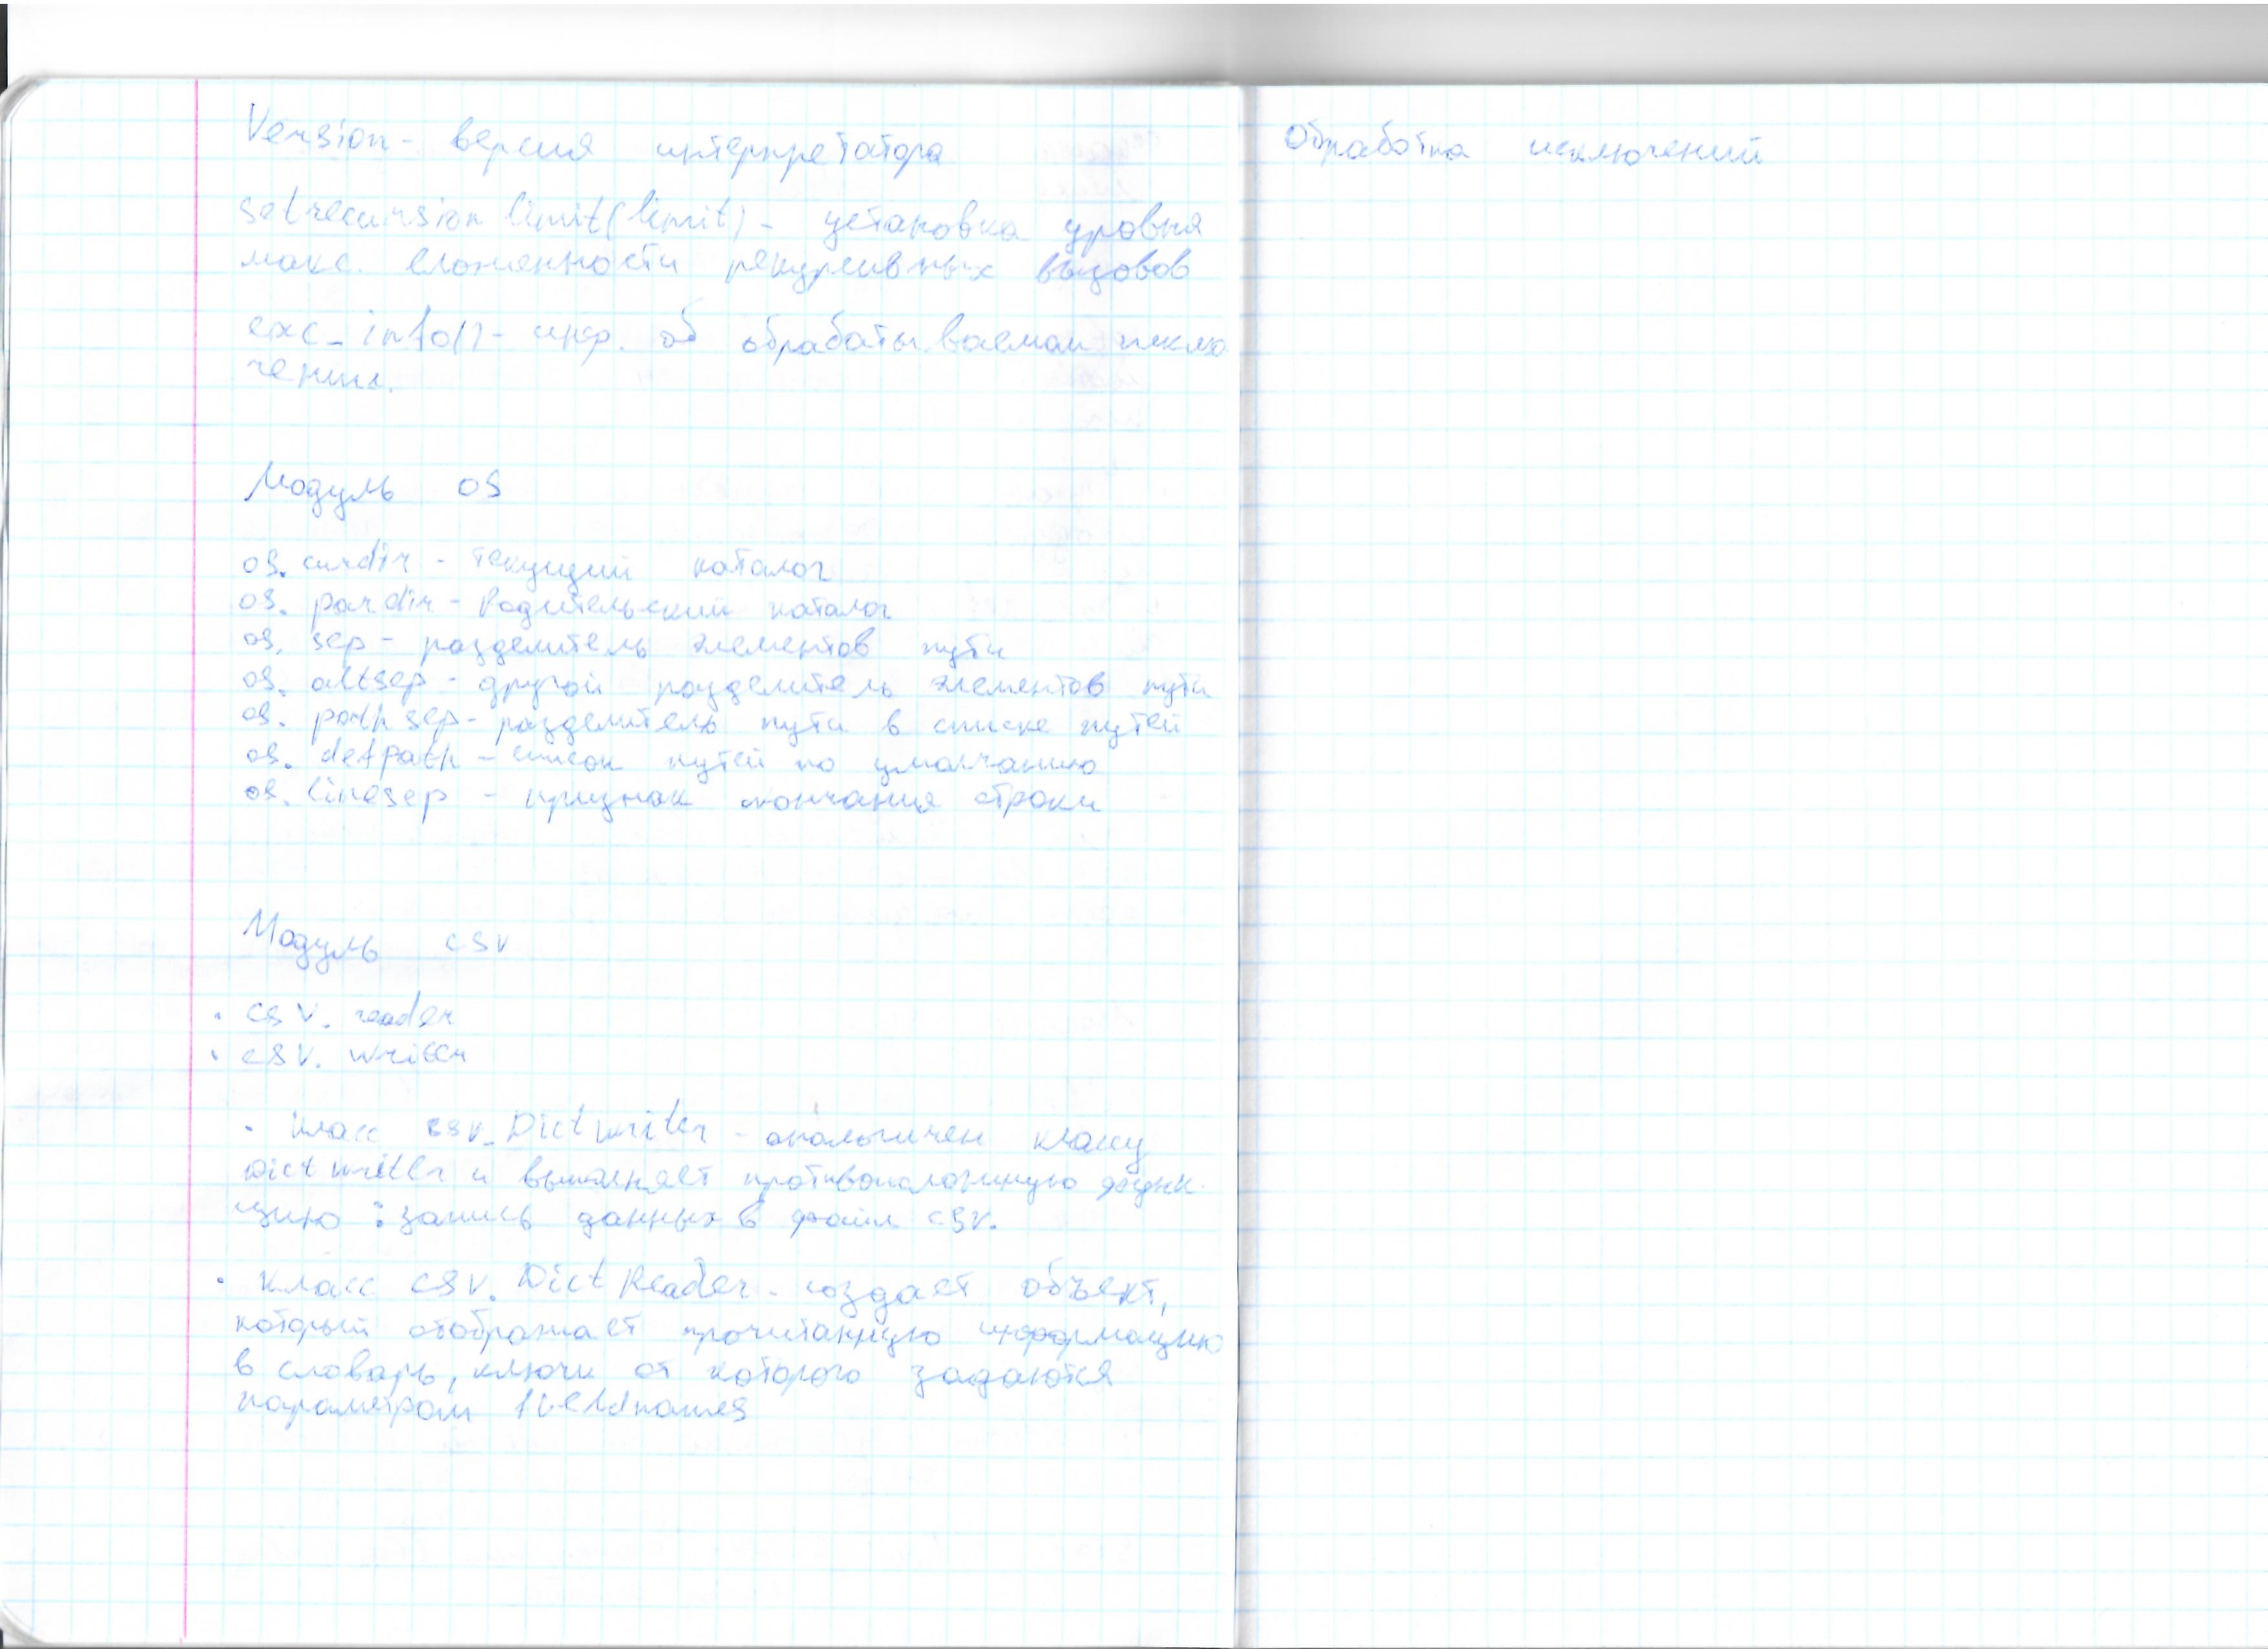 Version - версия интерпретатора
setrecursion limit(limit) - установка уровня
макс. вложенности рекурсивных вызовов
exc_info() - инф. об обрабатываемом исклю
чении.
Модуль os
os. curdir - текущий каталог
os. pardir - Родительский каталог
os. sep - разделитель элементов пути
os. altsep - другой разделитель элементов пути
os. pathsep - разделитель пути в списке путей
os. defpath - список путей по умолчанию
os. linesep - признак окончания строки
Модуль csv
• csv. reader
• csv. writer
• Класс csv. Dictwriter - аналогичен классу
Dictwriter и выполняет противоположную функ-
цию : запись данных в файл csv.
• Класс csv. DictReader - создает объект,
который отображает прочитанную информацию
в словарь, ключи от которого задаются
параметром fieldnames
Обработка исключений